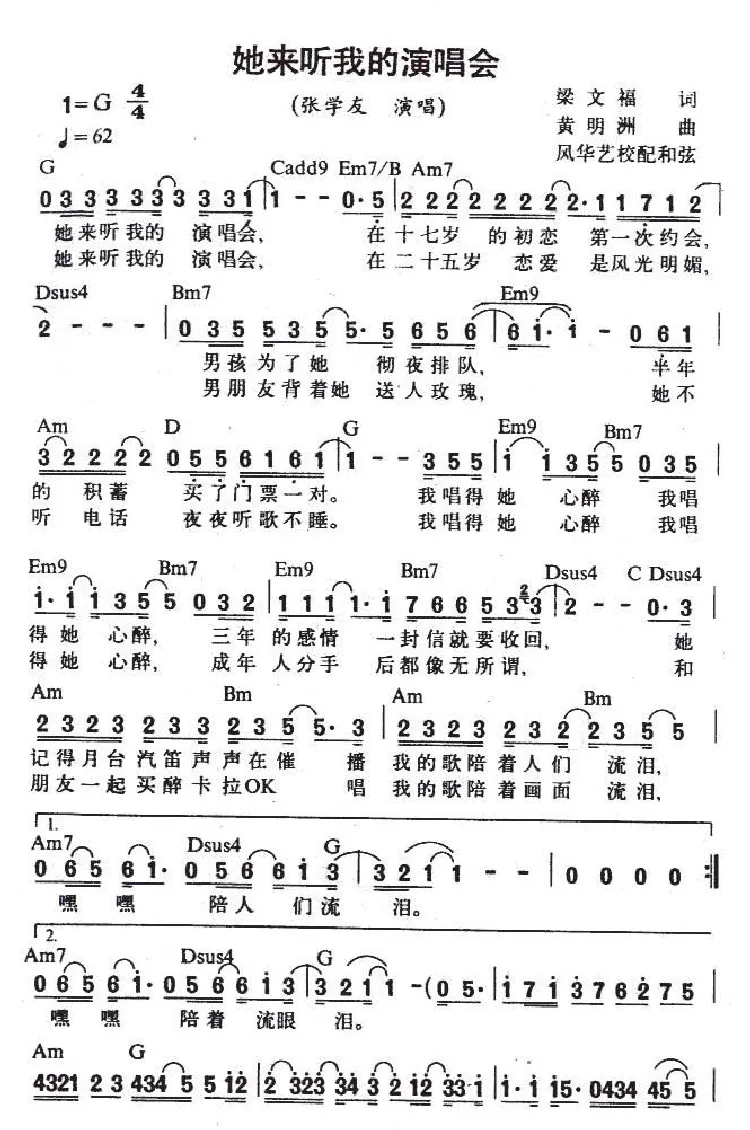 她来听我的演唱会
1=G 4/4 (张学友 演唱) 梁文福 词
♩=62 黄明洲 曲
风华艺校配和弦
G Cadd9 Em7/B Am7
0333 33333 331 | 1 - - 0·5 | 2222 2222 2·11712 |
她来听我的 演唱会, 在十七岁 的初恋 第一次约会,
她来听我的 演唱会, 在二十五岁 恋爱 是风光明媚,
Dsus4 Bm7 Em9
2 - - - | 035 535 5 5· 656 | 61· 1 - 061 |
男孩为了她 彻夜排队, 半年
男朋友背着她 送人玫瑰, 她不
Am D G Em9 Bm7
32222 055 6161 | 1 - - 355 | 1 1355 035 |
的 积蓄 买了门票一对。 我唱得她 心醉 我唱
听 电话 夜夜听歌不睡。 我唱得她 心醉 我唱
Em9 Bm7 Em9 Bm7 Dsus4 C Dsus4
1· 1 1355 032 | 111 1·1 766 533 | 2 - - 0·3 |
得她 心醉, 三年 的感情 一封信就要收回, 她
得她 心醉, 成年 人分手 后都像无所谓, 和
Am Bm Am Bm
2323 233 235 5·3 | 2323 232 2235 5 |
记得月台 汽笛声声在催 播 我的歌陪着人们 流泪,
朋友一起 买醉卡拉OK 唱 我的歌陪着画面 流泪,
1.
Am7 Dsus4 G
065 61· 056 6613 | 321 1 - - | 0 0 0 0 :||
嘿 嘿 陪人 们流 泪。
2.
Am7 Dsus4 G
065 61· 0566 613 | 321 1 -(05· | 171 376 275 |
嘿 嘿 陪着 流眼 泪。
Am G
4321 23 4345 512 | 2·323 34 3212 33·1 | 1·1 15· 0434 455 |